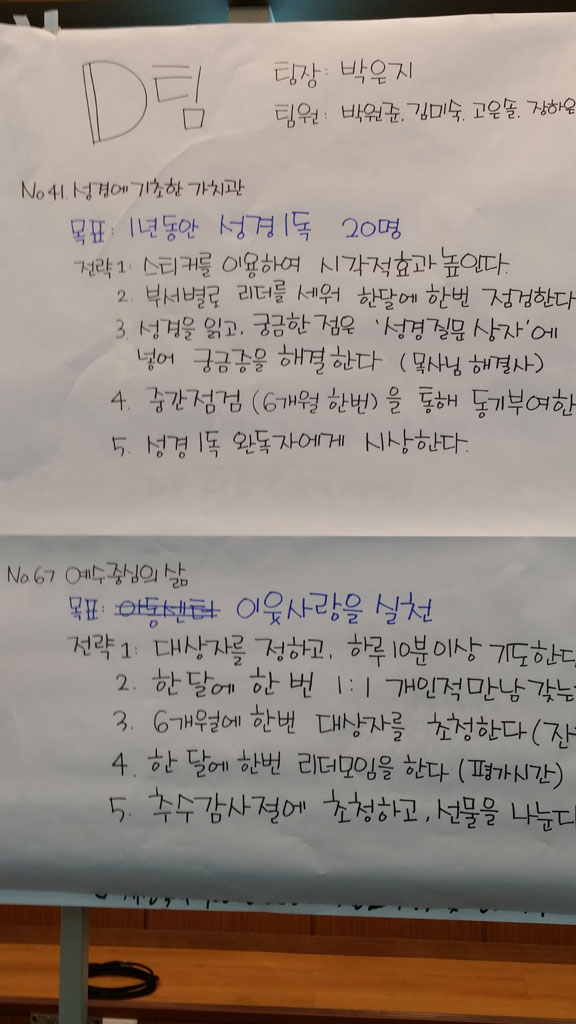 D팀
팀장: 박은지
팀원: 박원준, 김미숙, 고은솔, 장하은
No 41. 성경에 기초한 가치관
목표: 1년동안 성경 1독 20명
전략 1. 스티커를 이용하여 시각적효과 높인다.
2. 부서별로 리더를 세워 한달에 한번 점검한다
3. 성경을 읽고, 궁금한 점은 '성경질문 상자'에
넣어 궁금증을 해결한다 (목사님 해결사)
4. 중간점검 (6개월 한번)을 통해 동기부여한
5. 성경 1독 완독자에게 시상한다.
No.67 예수중심의 삶
목표: 이웃사랑을 실천
전략 1. 대상자를 정하고, 하루 10분이상 기도한다
2. 한 달에 한 번 1:1 개인적만남 갖는
3. 6개월에 한번 대상자를 초청한다 (잔
4. 한 달에 한번 리더모임을 한다 (평가시간)
5. 추수감사절에 초청하고, 선물을 나눈다